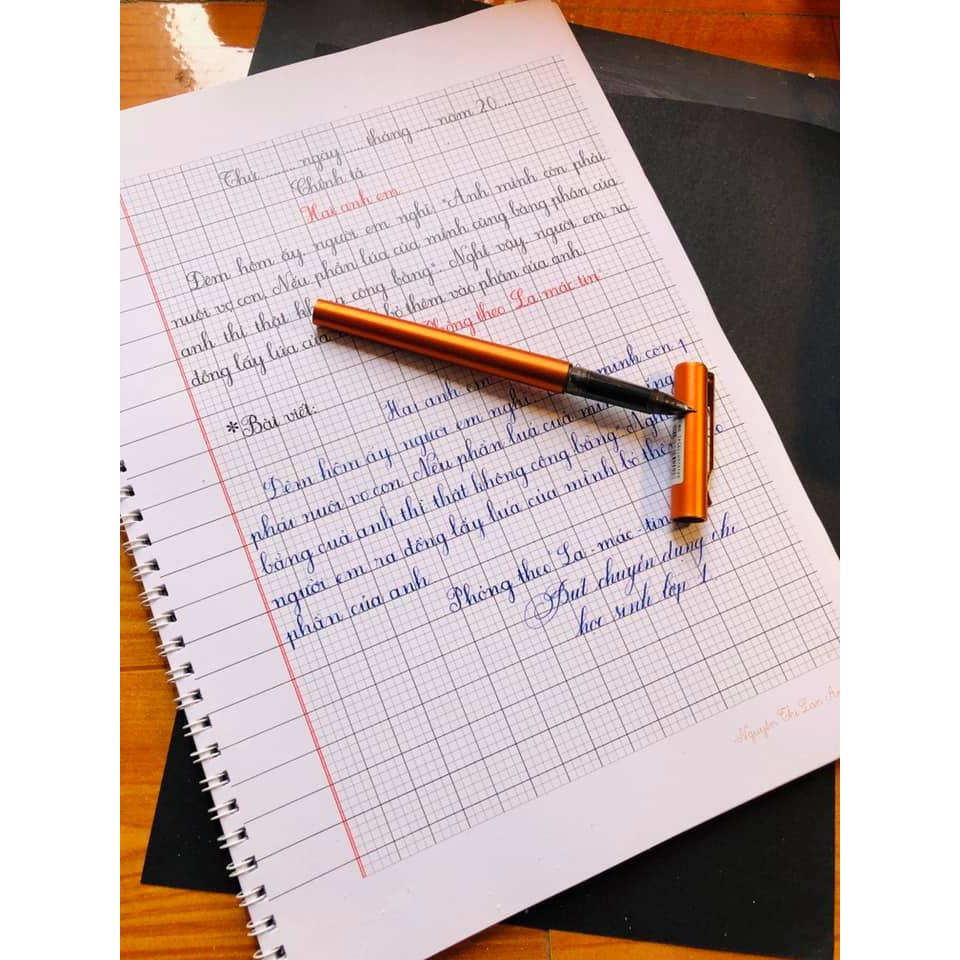 Thứ ........ ngày ...... tháng ..... năm 20 .....
Chính tả
Hai anh em
Đêm hôm ấy, người em nghĩ: "Anh mình còn phải
nuôi vợ con. Nếu phần lúa của mình cũng bằng phần của
anh thì thật công bằng". Nghĩ vậy, người em ra
đồng lấy lúa của bỏ thêm vào phần của anh.
theo La mác tin
*Bài viết:
Hai anh em
Đêm hôm ấy người em nghĩ: minh con
phải nuôi vợ con. Nếu phần luá của
bằng cuả anh thì thật không công bằng". Nghĩ
người em ra đồng lấy luá của mình bỏ
phần của anh
Phỏng theo La - mác - tin
Bút chuyên dùng
học sinh lớp 1.
Nguyễn Thị Lan